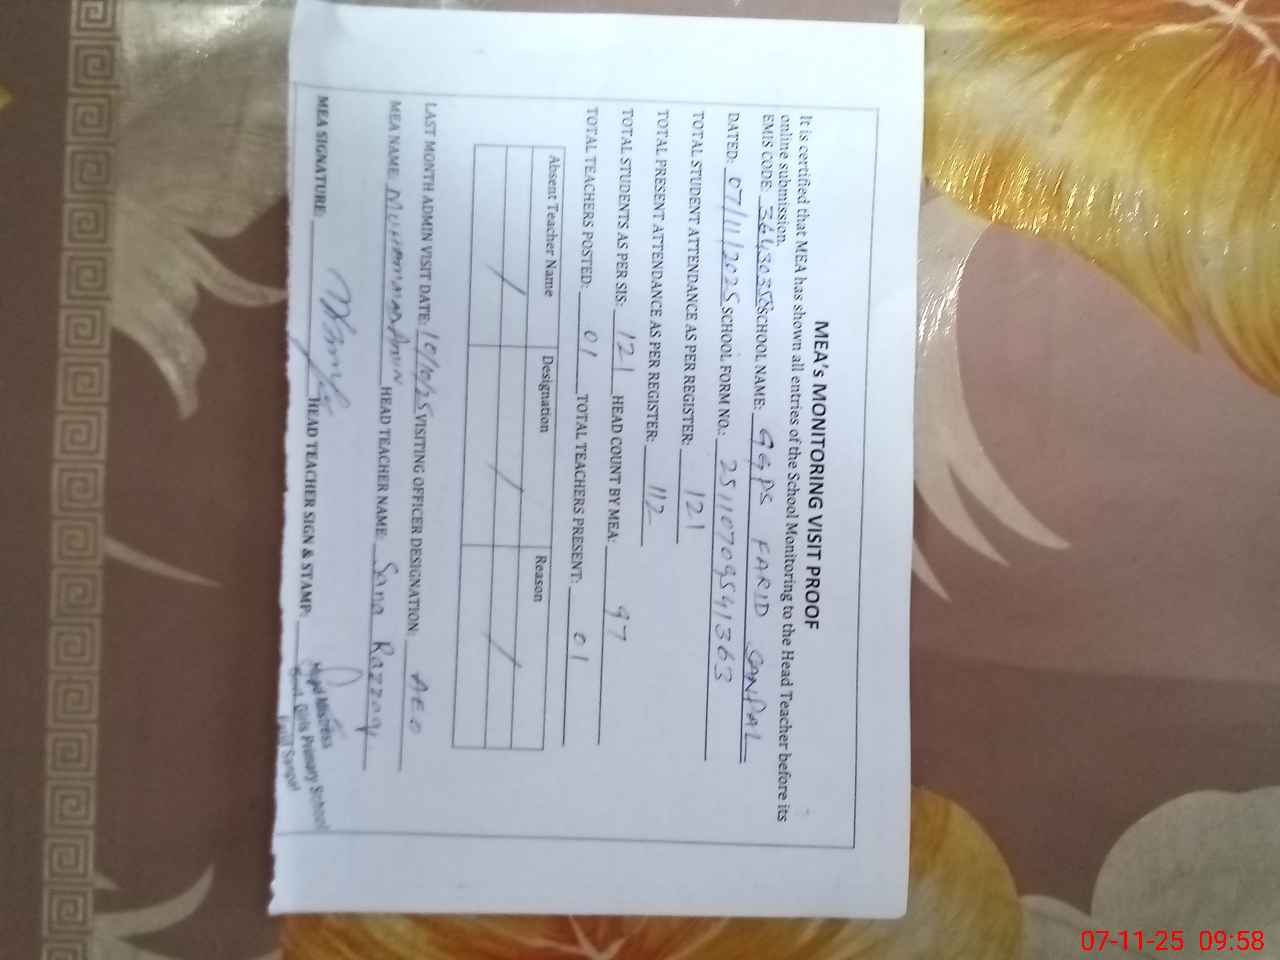 MEA's MONITORING VISIT PROOF
It is certified that MEA has shown all entries of the School Monitoring to the Head Teacher before its
online submission.
EMIS CODE: SCHOOL NAME: GGPS FARID SANPAL
DATED: 07/11/2025 SCHOOL FORM NO.: 25110709541363
TOTAL STUDENT ATTENDANCE AS PER REGISTER: 121
TOTAL PRESENT ATTENDANCE AS PER REGISTER: 112
TOTAL STUDENTS AS PER SIS: 121 HEAD COUNT BY MEA: 97
TOTAL TEACHERS POSTED: 01 TOTAL TEACHERS PRESENT: 01
Absent Teacher Name Designation Reason
/ / /
LAST MONTH ADMIN VISIT DATE: VISITING OFFICER DESIGNATION: AEO
MEA NAME: Muhammad Amin HEAD TEACHER NAME: Sana Razzaq
MEA SIGNATURE: HEAD TEACHER SIGN & STAMP:
Head Mistress
Govt. Girls Primary School
Farid Sanpal
07-11-25 09:58